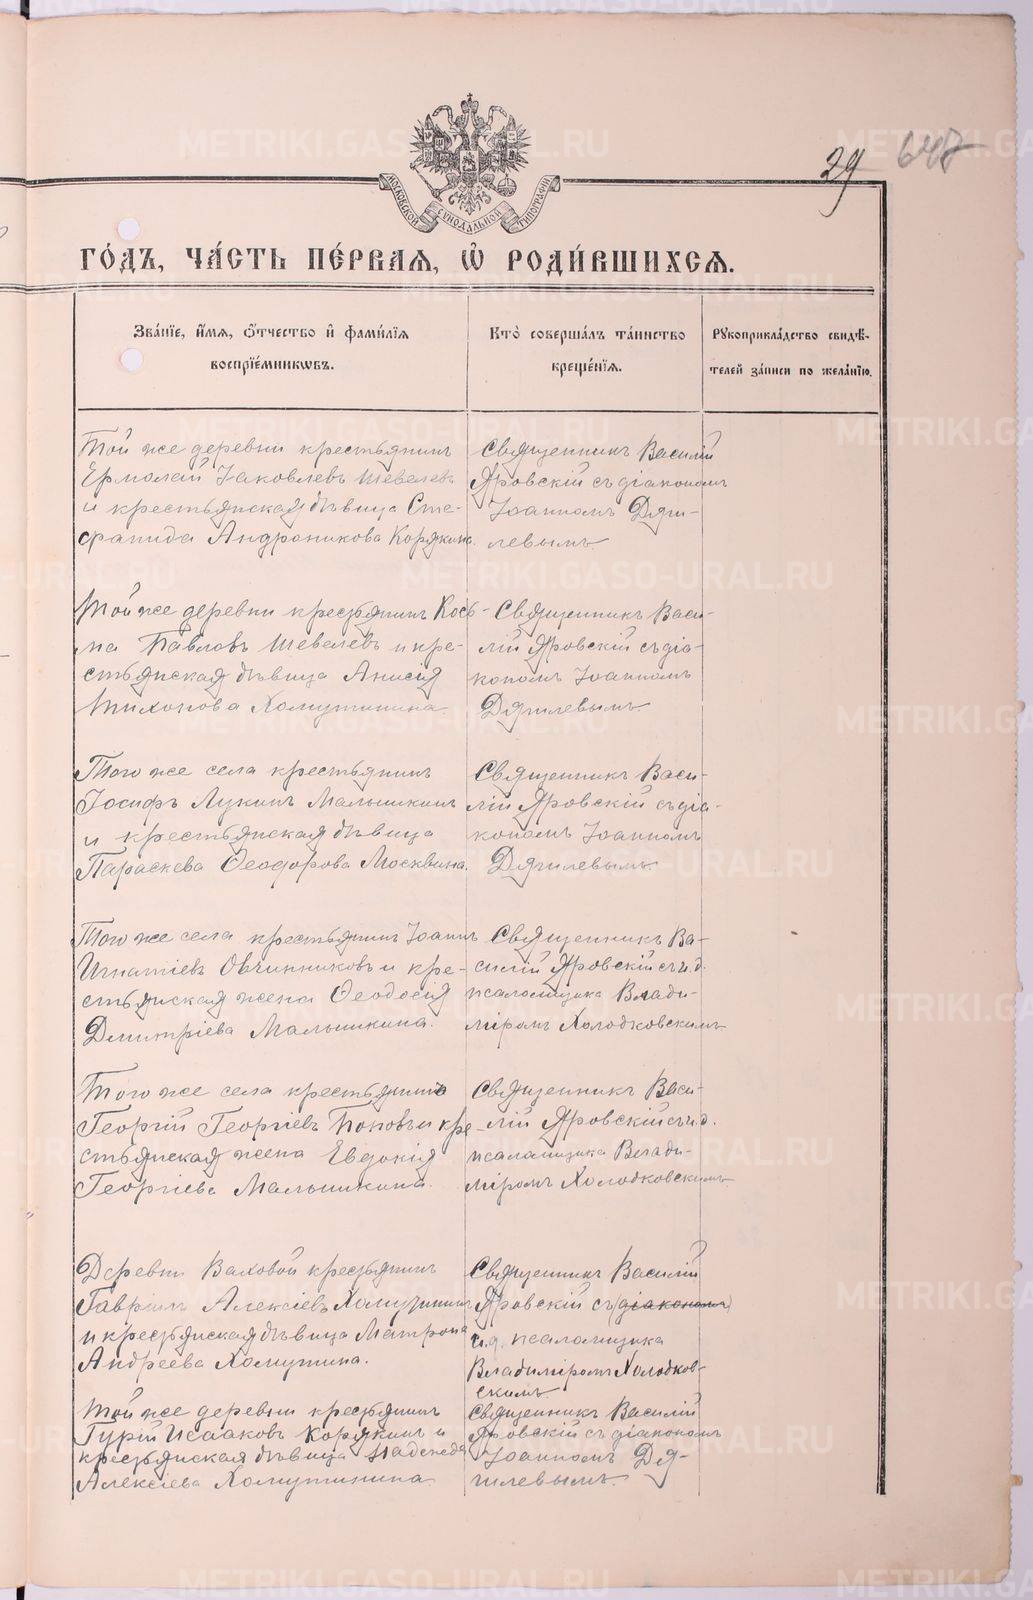 29 648
МОСКОВСКОЙ СѴНОДАЛЬНОЙ ТИПОГРАФІИ
ГО́ДЪ, ЧА́СТЬ ПЕ́РВАѦ, Ѡ҆ РОДИ́ВШИХСѦ.
Зва́нїе, и҆́мѧ, ѻ҆́тчество и҆ фами́лїѧ
воспрїе́мникѡвъ.
Кто̀ соверша́лъ та́инство
креще́нїѧ.
Рꙋкоприкла́дство свидѣ́-
телей за́писи по жела́нїю.
Той же деревни крестьянинъ
Ермолай Іаковлевъ Шевелевъ
и крестьянская дѣвица Сте-
фанида Андроникова Корякина.
Священникъ Василій
Яровскій съ діакономъ
Іоанномъ Дяги-
левымъ
Той же деревни крестьянинъ Кось-
ма Павловъ Шевелевъ и кре-
стьянская дѣвица Анисія
Тихонова Хомутинина
Священникъ Васи-
лій Яровскій съ діа-
кономъ Іоанномъ
Дягилевымъ
Того же села крестьянинъ
Іосифъ Лукинъ Малышкинъ
и крестьянская дѣвица
Параскева Ѳеодорова Москвина.
Священникъ Васи-
лій Яровскій съ діа-
кономъ Іоанномъ
Дягилевымъ.
Того же села крестьянинъ Іоаннъ
Игнатіевъ Овчинниковъ и кре-
стьянская жена Ѳеодосія
Дмитріева Малышкина.
Священникъ Ва-
силій Яровскій съ и.д.
псаломщика Влади-
міромъ Холодковскимъ
Того же села крестьянинъ
Георгій Георгіевъ Поповъ и кре-
стьянская жена Евдокія
Георгіева Малышкина.
Священникъ Васи-
лій Яровскій съ и.д.
псаломщика Влади-
міромъ Холодковскимъ
Деревни Ваховой крестьянинъ
Гавріилъ Алексіевъ Хомутининъ
и крестьянская дѣвица Матрона
Андреева Хомутина.
Священникъ Василій
Яровскій съ (діакономъ)
и.д. псаломщика
Владиміромъ Холодков-
скимъ
Той же деревни крестьянинъ
Гурій Исааковъ Корякинъ и
крестьянская дѣвица Надежда
Алексіева Хомутинина
Священникъ Василій
Яровскій съ діакономъ
Іоанномъ Дя-
гилевымъ.
METRIKI.GASO-URAL.RU